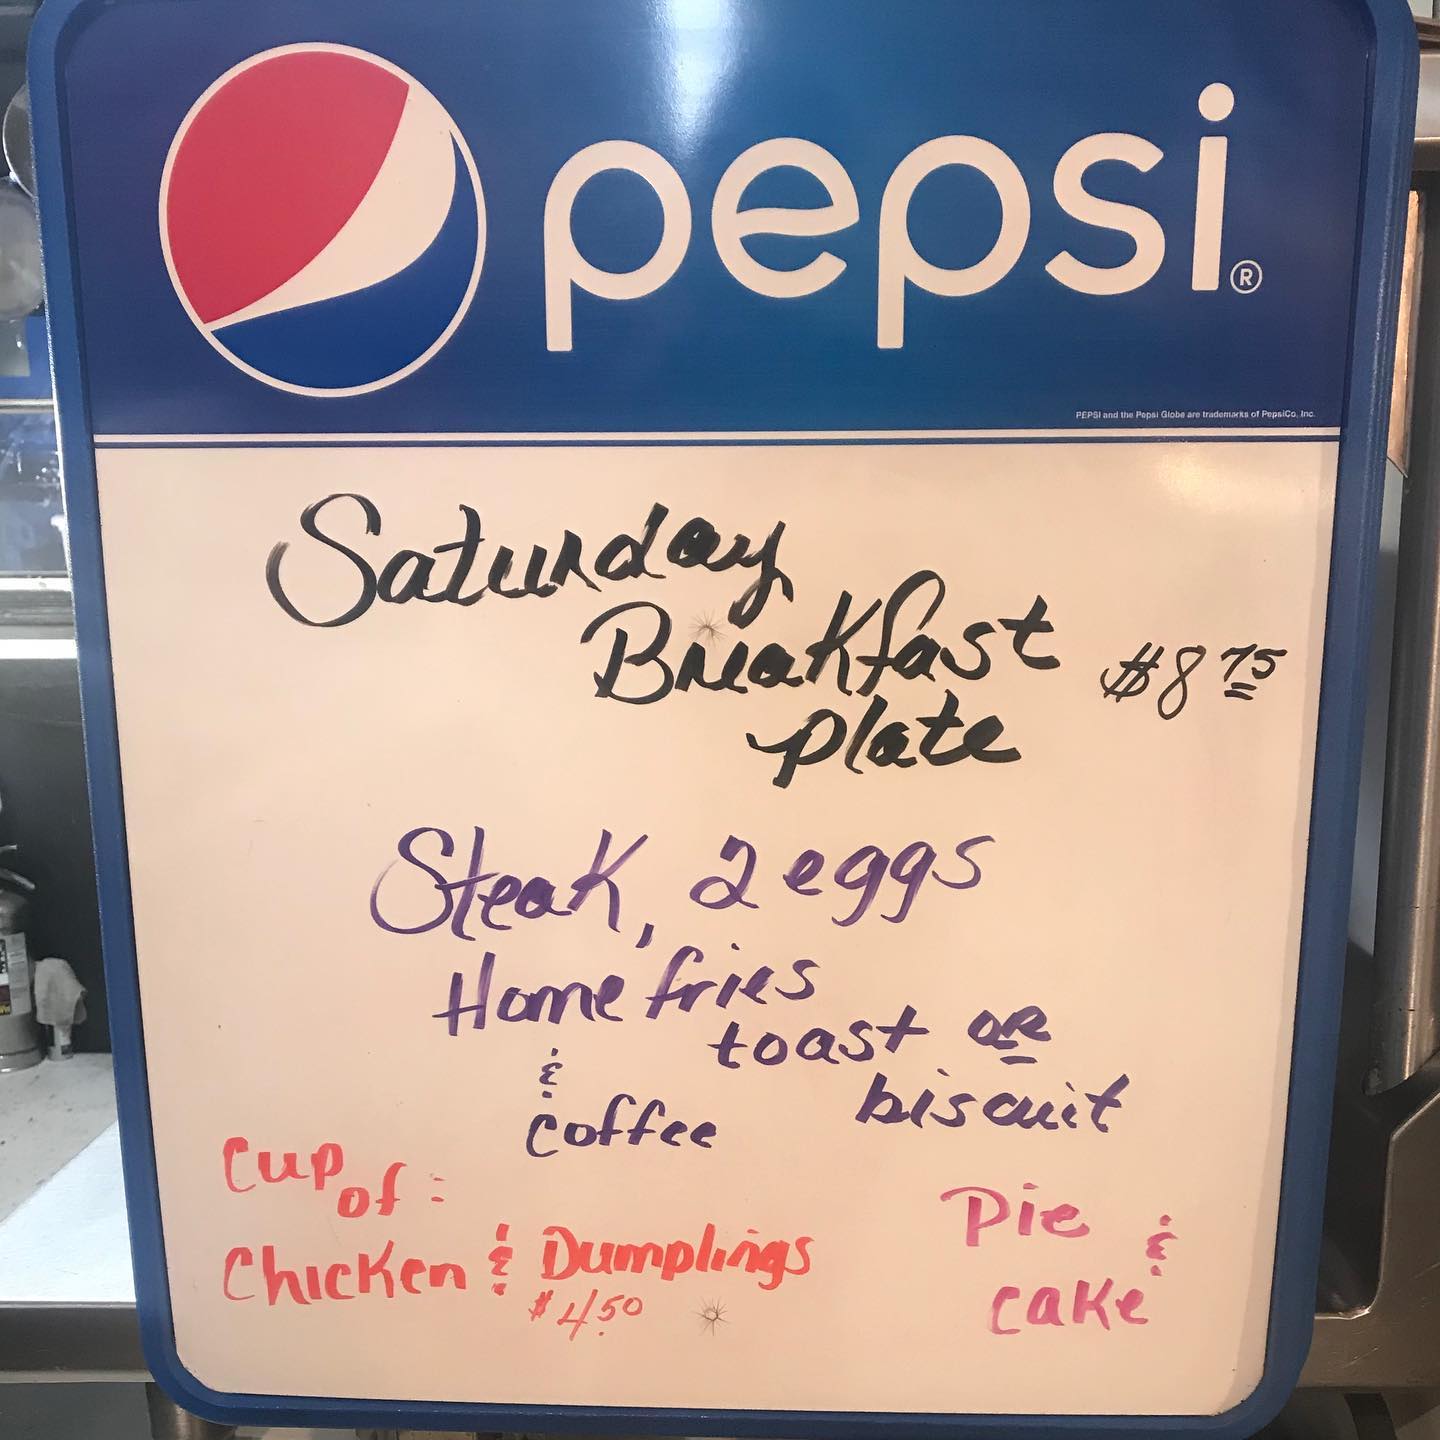 pepsi®
PEPSI and the Pepsi Globe are trademarks of PepsiCo, Inc.
Saturday
Breakfast $8 75
plate
Steak, 2 eggs
Home fries
toast OR
biscuit
&
coffee
Cup of:
Chicken & Dumplings
$4.50
Pie &
cake